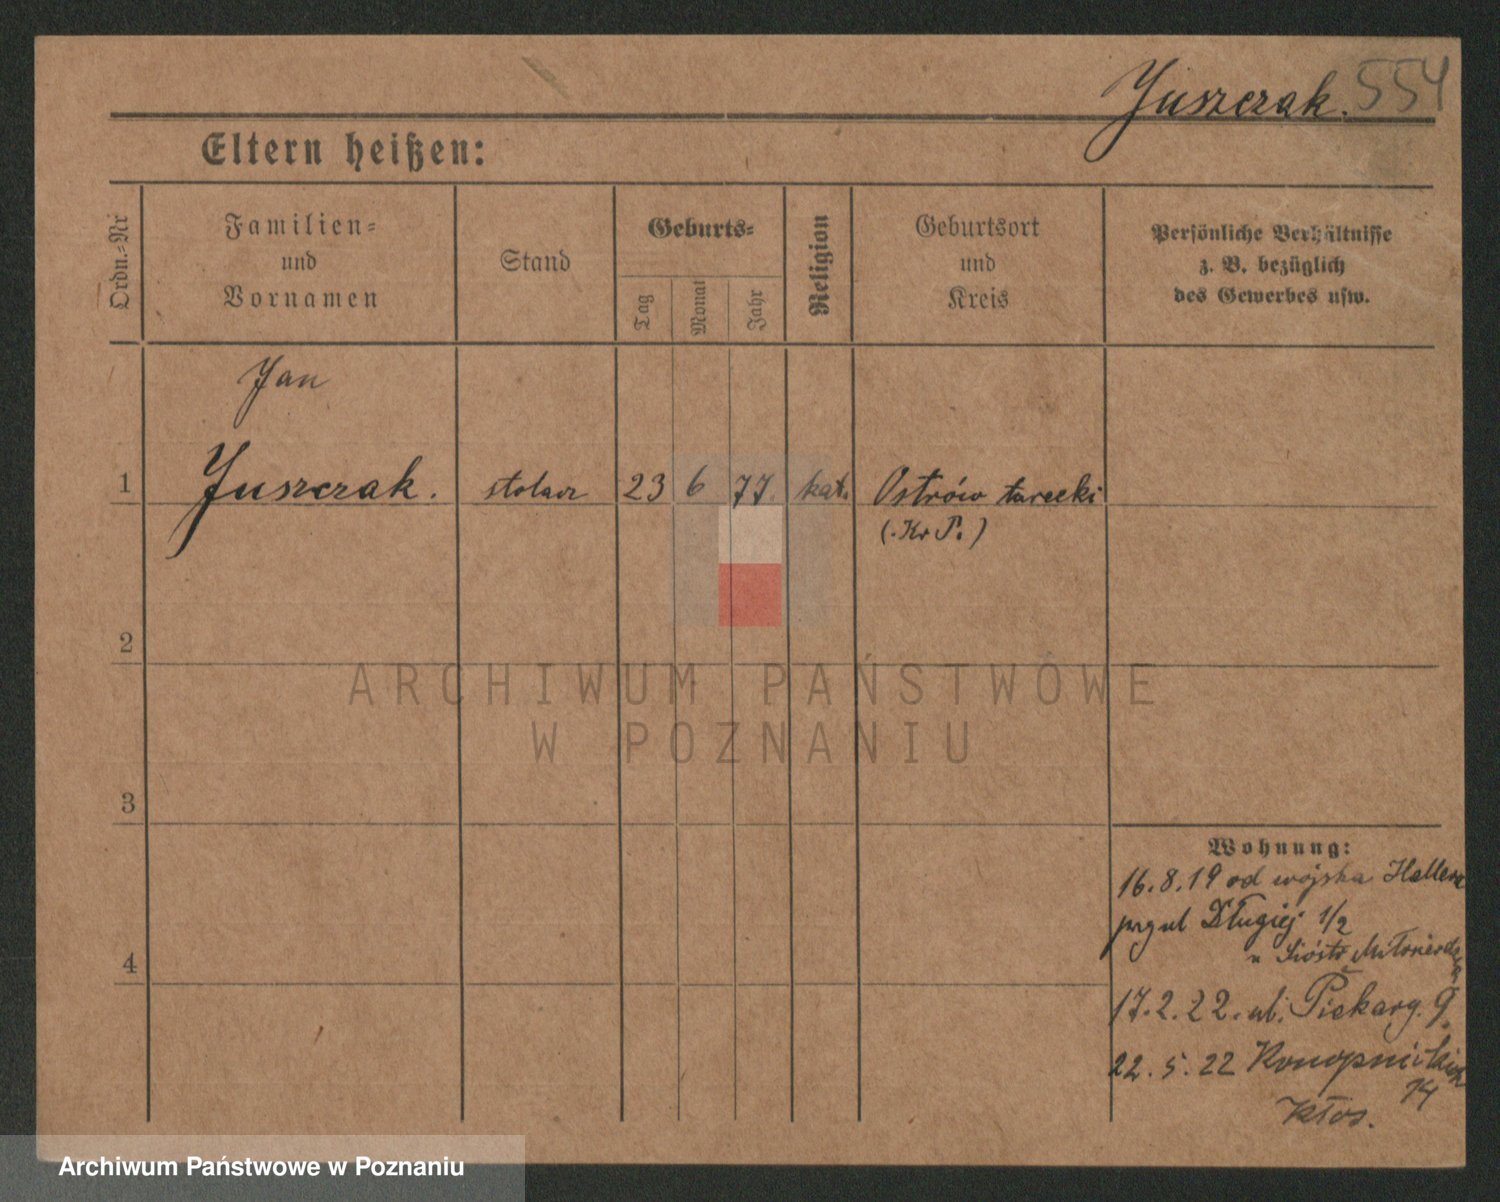 Juszczak. 554
Eltern heißen:
Ordn.-Nr
Familien-
und
Vornamen
Stand
Geburts-
Tag
Monat
Jahr
Religion
Geburtsort
und
Kreis
Persönliche Verhältnisse
z. B. bezüglich
des Gewerbes usw.
Jan
1 Juszczak. stolarz 23 6 77. kat. Ostrów turecki
(. Kr P. )
2
3
4
Wohnung:
16.8.19 od wojska Hallera
przy ul Długiej 1/2
u Sióstr Miłosierdzia
17.2.22. ul. Piekary. 9.
22.5.22 Konopnickiej
14
Kłos.
ARCHIWUM PAŃSTWOWE
W POZNANIU
Archiwum Państwowe w Poznaniu